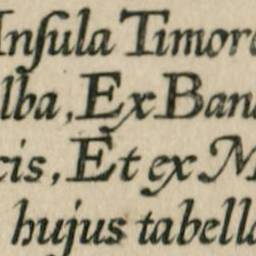 Insula Timore
lba, Ex Bana
cis, Et ex M
hujus tabella